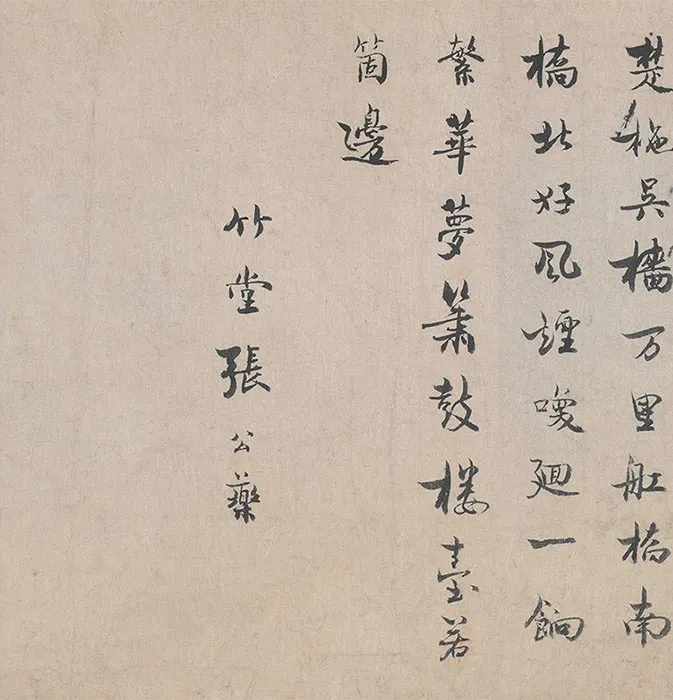 楚柂吳檣万里舡橋南
橋北好風煙喚廻一餉
繁華夢簫鼓樓臺若
箇邊
竹堂張公藥